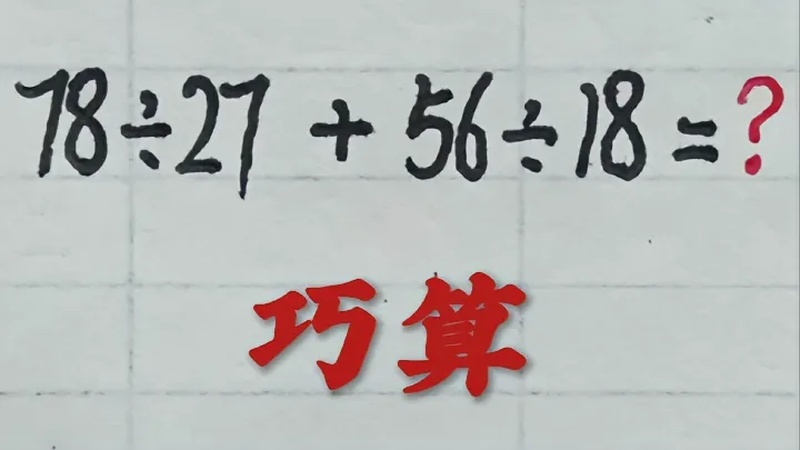 78÷27 + 56÷18=?
巧算